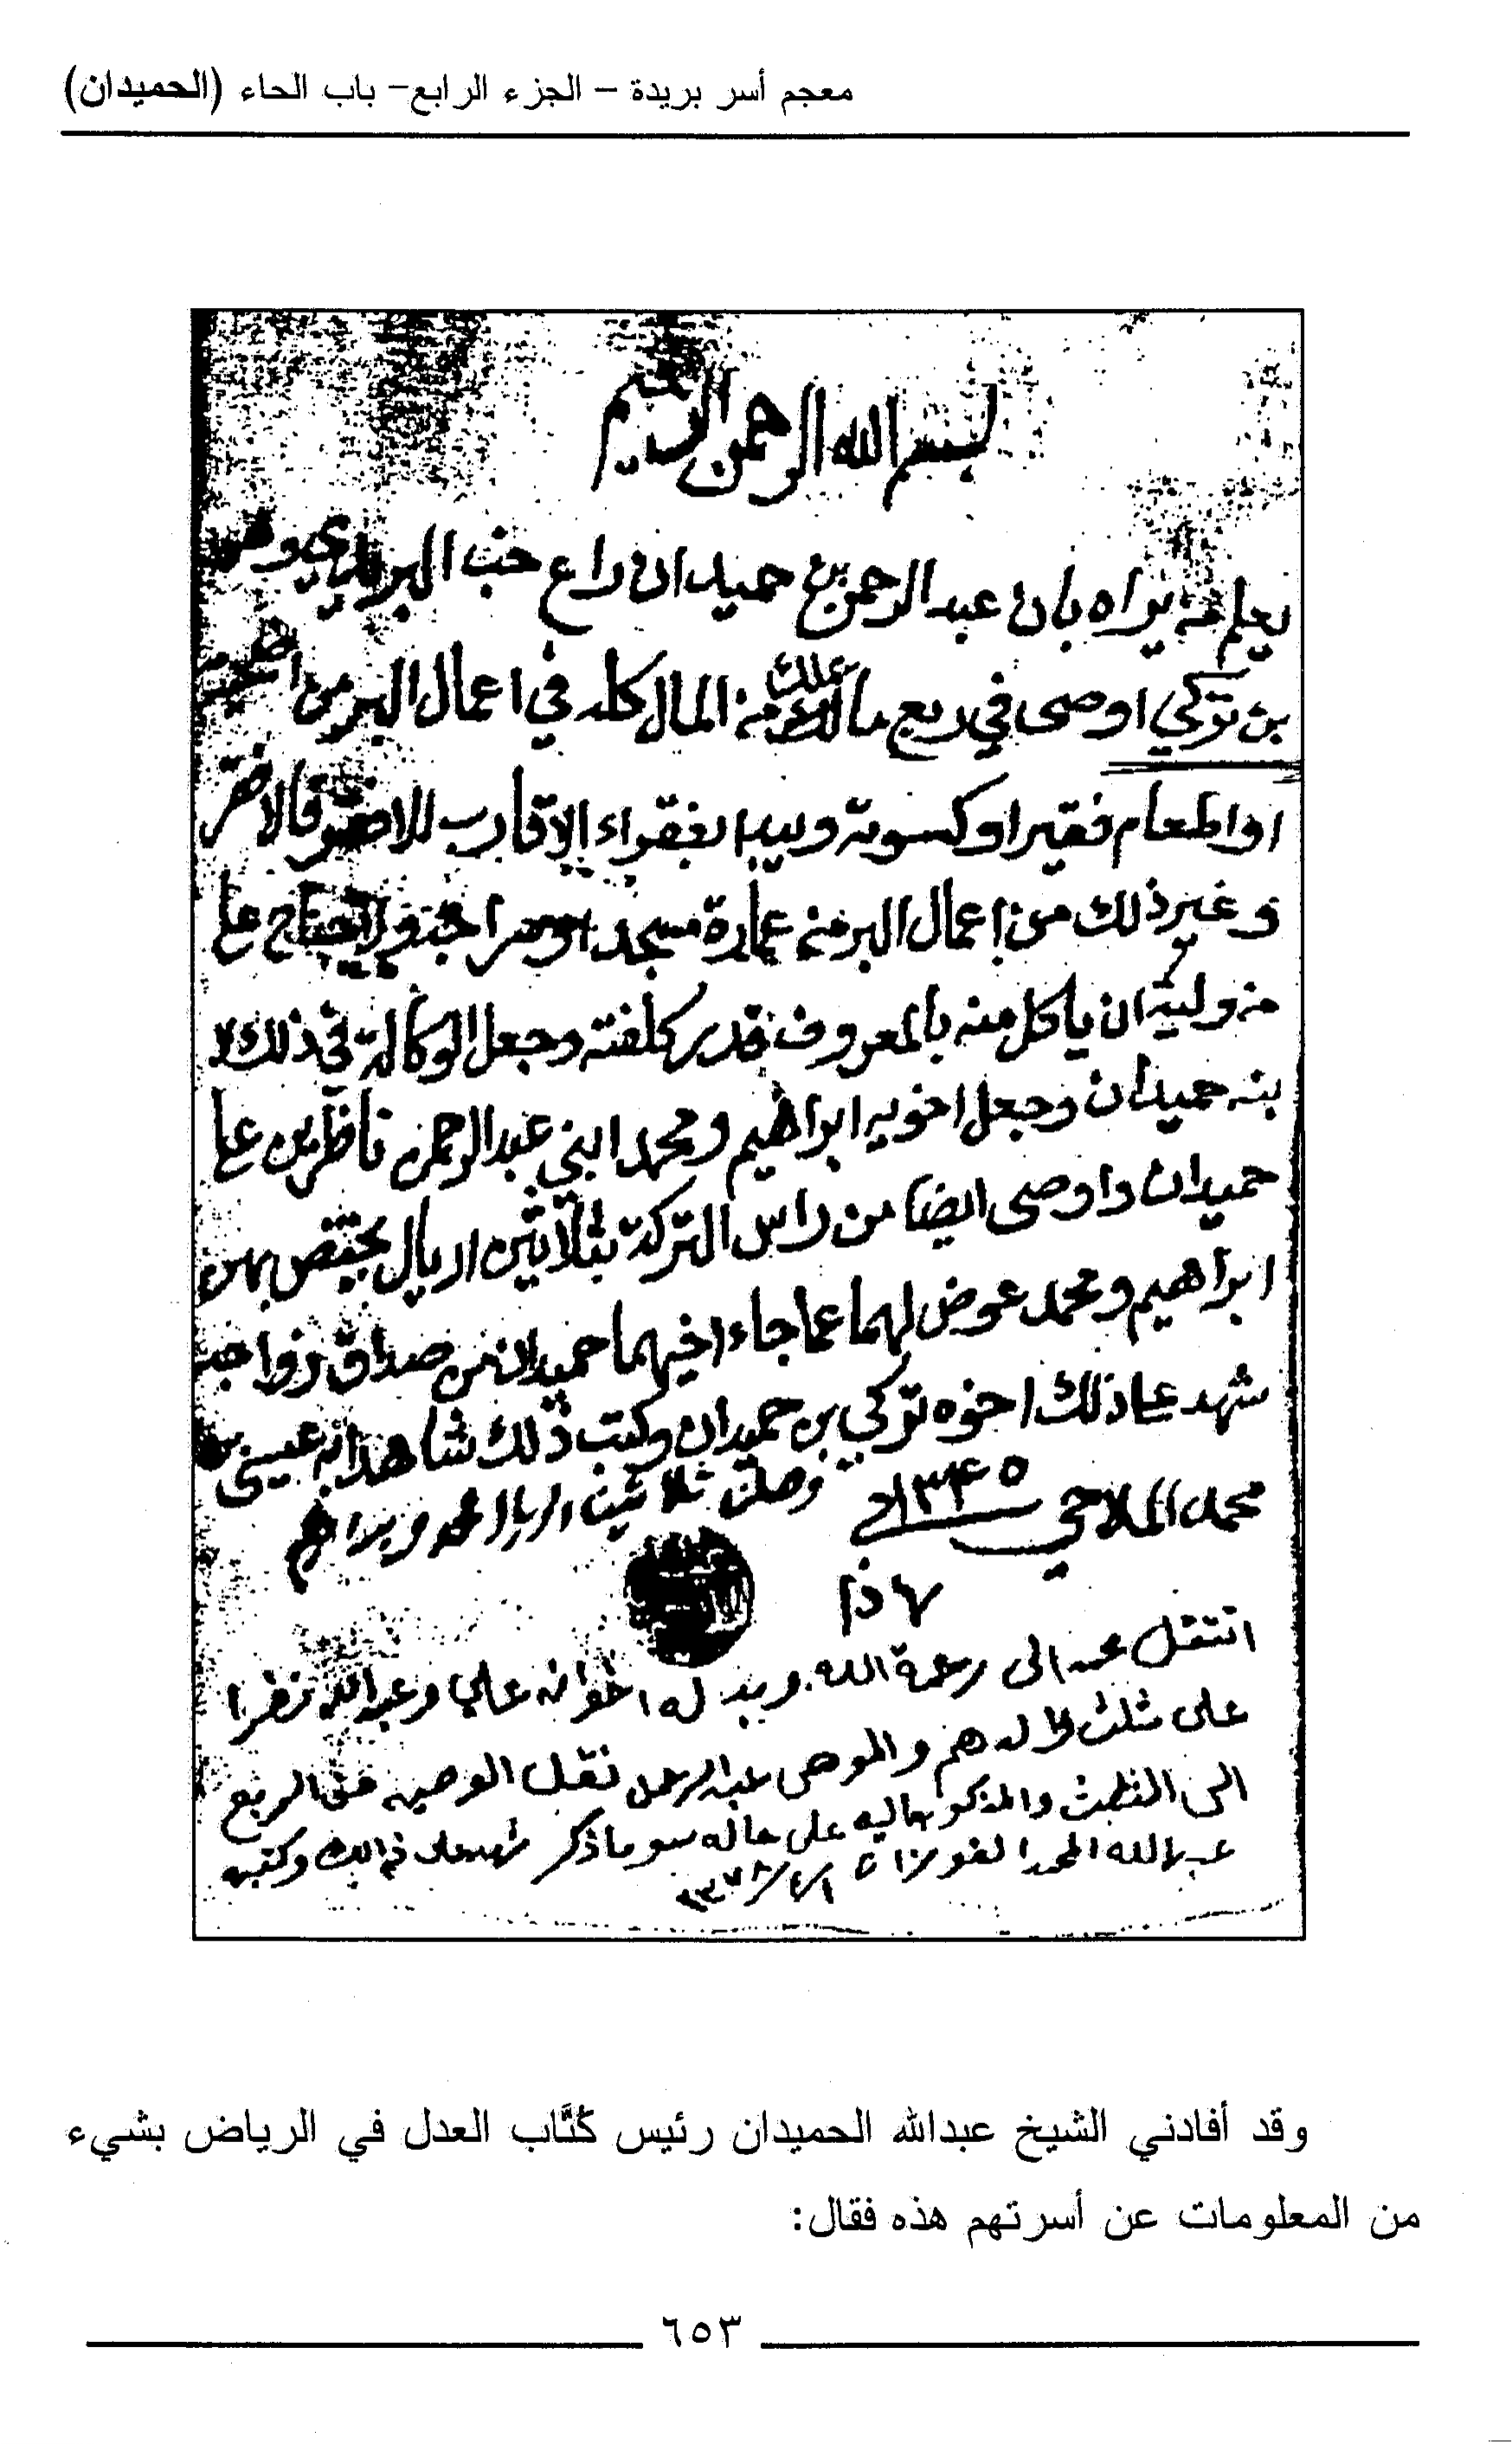 معجم أسر بريدة – الجزء الرابع– باب الحاء (الحميدان)
بسم الله الرحمن الرحيم
يعلم من يراه بان عبد الرحمن بن حميدان راع خب البريدي وهو
بن تركي اوصى في ربع ما يملك من المال كله في اعمال البر من
او اطعام فقير او كسوته ويبدا بفقراء الاقارب للاحق فالاحق
وغير ذلك من اعمال البر من عمارة مسجد
من وليه ان ياكل منه بالمعروف قدر كلفته وجعل الوكالة في ذلك لا
بنه حميدان وجعل اخويه ابراهيم ومحمد ابني عبد الرحمن ناظرين على
حميدان واوصى ايضا من راس التركة بثلاثين اريال يختص بهن
ابراهيم ومحمد عوض لهما عما جاء اخيهما حميدان من صداق زواجه
شهد على ذلك اخوه تركي بن حميدان وكتب ذلك شاهدا به عيسى بن
محمد الملاحي ١٣٤٥
وصلن ثلاثين اريال محمد وبراهيم
انتقل محمد الى رحمة الله وبدله اخوانه علي وعبدالله نظرا
على ثلث والدهم والموصي عبدالرحمن نقل الوصيه من الربع
الى الثلث والمذكور على حاله سو ما ذكر شهد على ذالك وكتبه
عبدالله المحمد الفوزان
وقد أفادني الشيخ عبدالله الحميدان رئيس كُتَّاب العدل في الرياض بشيء
من المعلومات عن أسرتهم هذه فقال:
٦٥٣